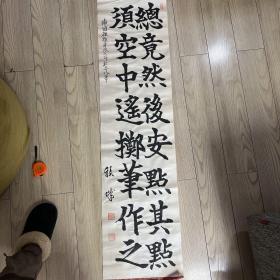 總竟然後安點其點
須空中遙擲筆作之